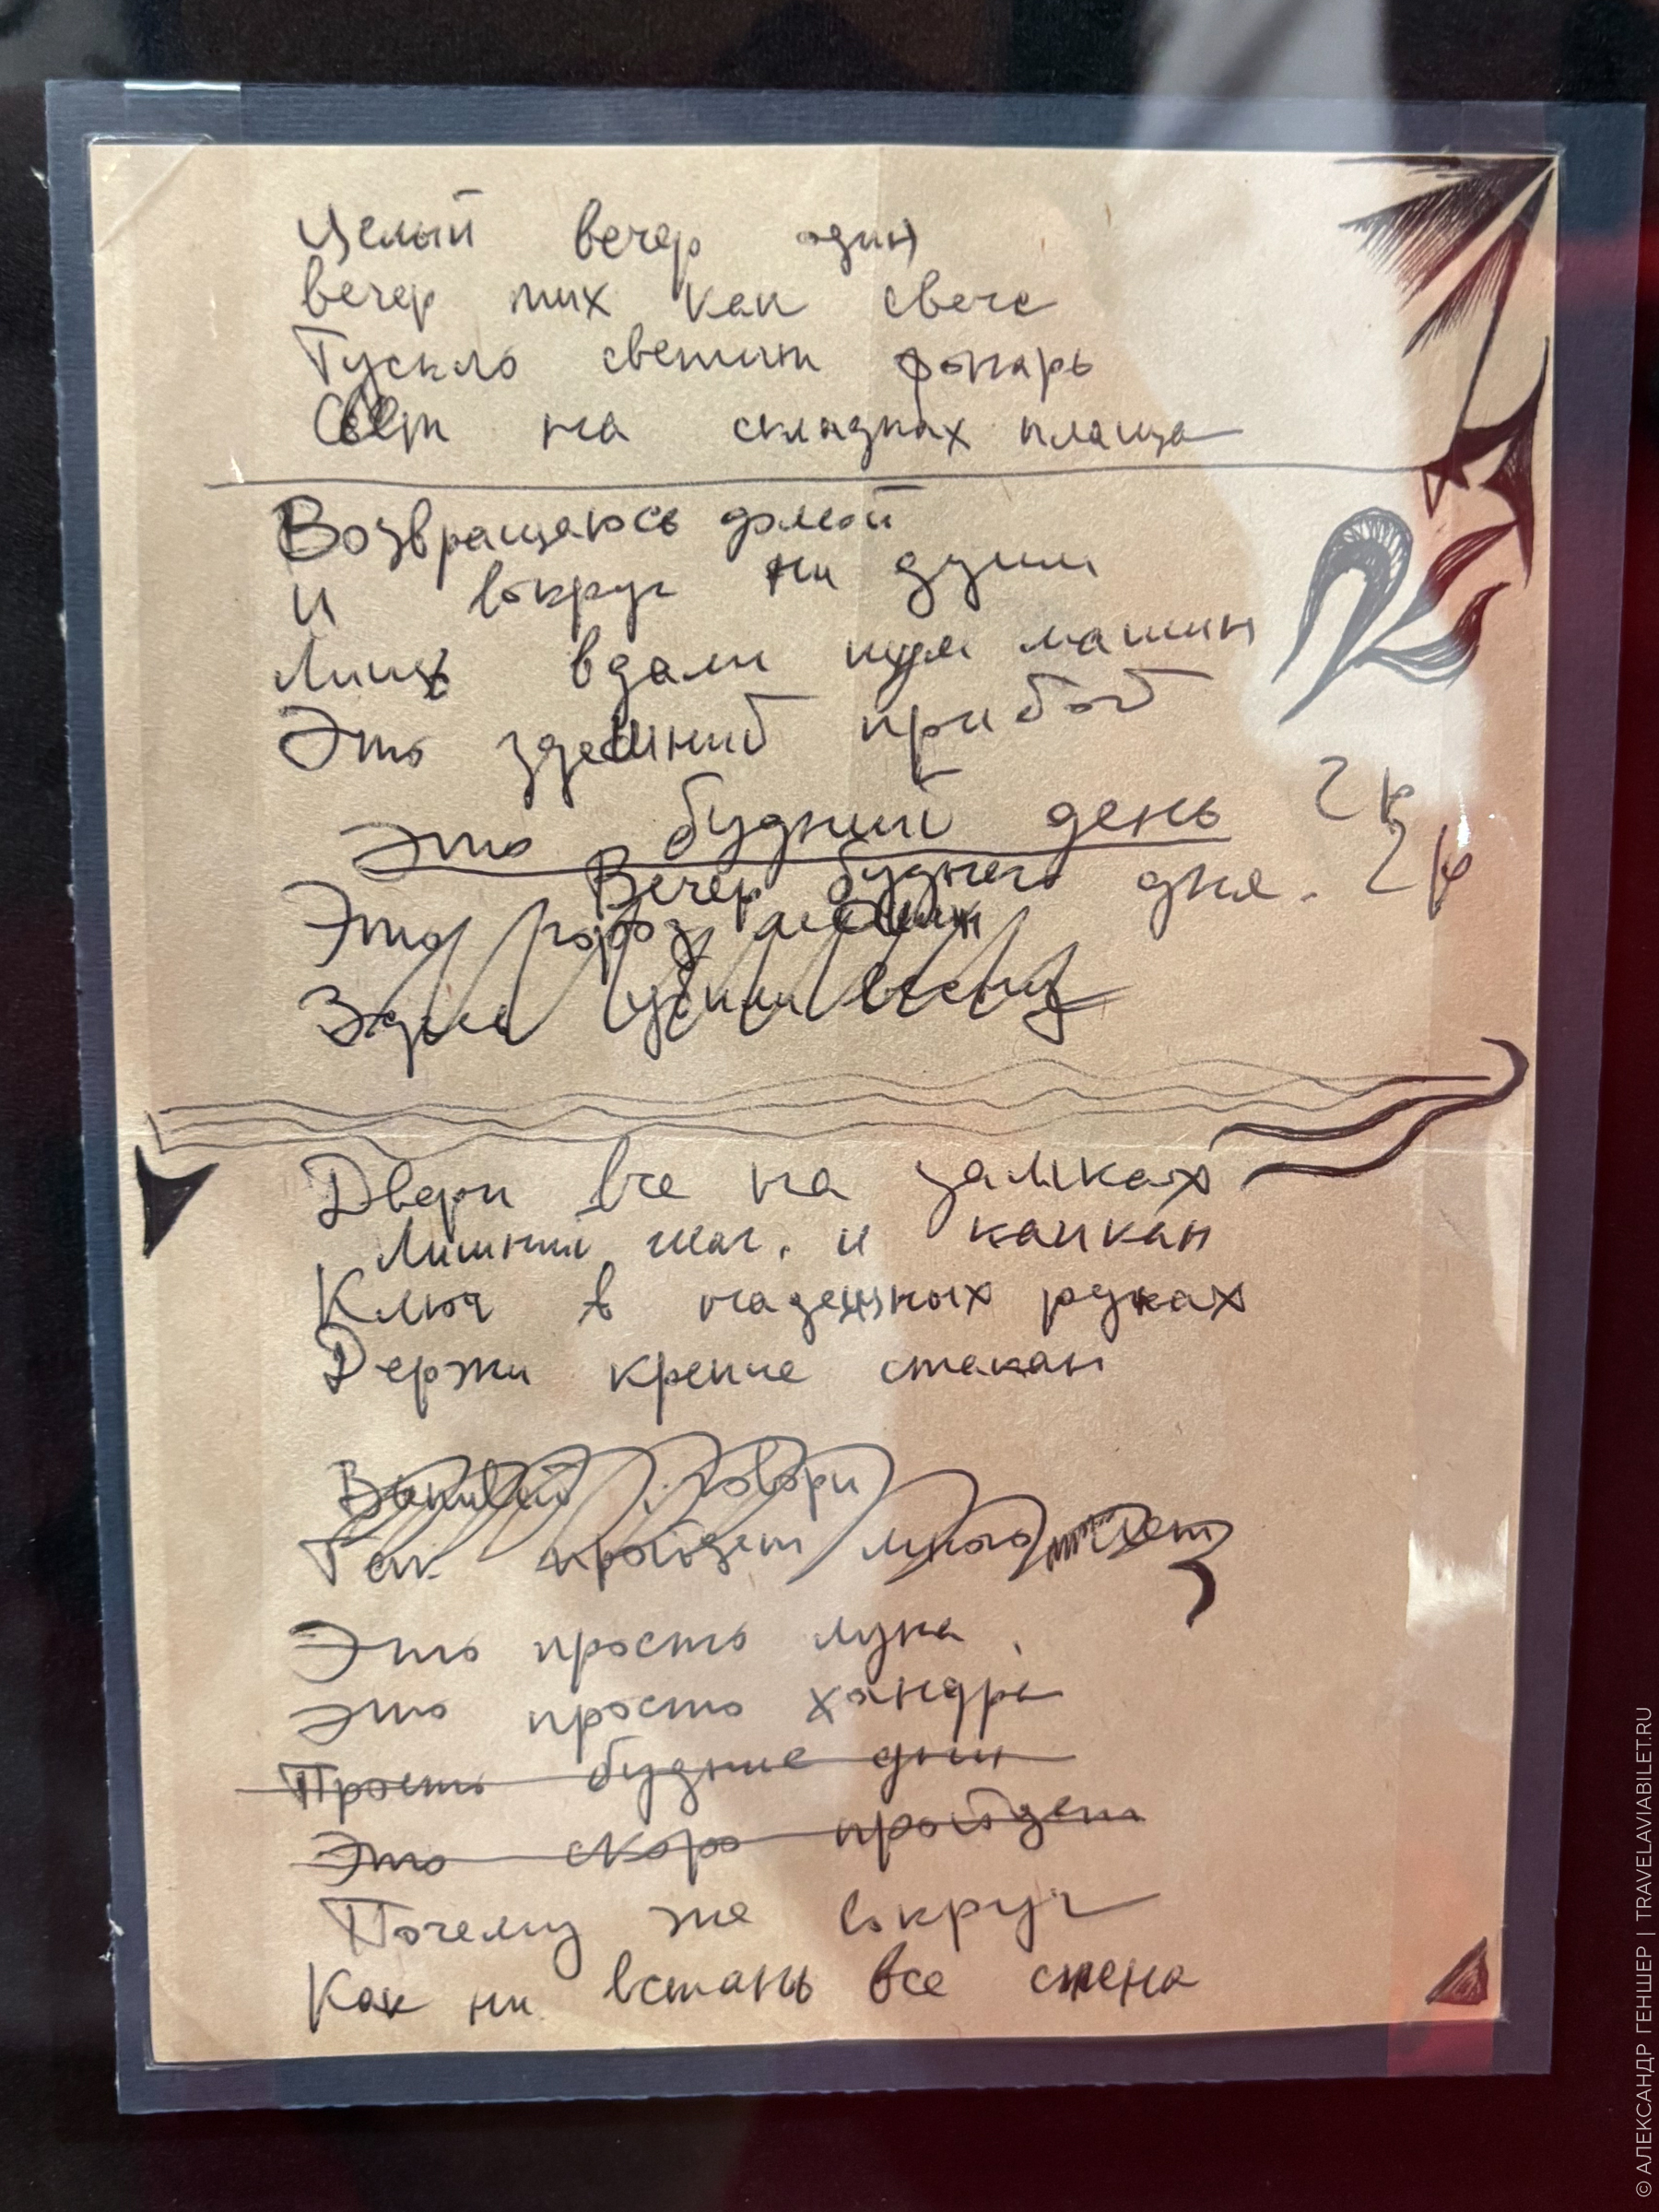 Целый вечер один
вечер тих как свеча
Тускло светит фонарь
Свет на складках плаща
Возвращаюсь домой
и вокруг ни души
Лишь вдали шум машин
Это здешний прибой
Это будний день 2 к
Вечер буднего дня. 2 к
Это город
Здесь убили весну
Двери все на замках
Лишний шаг. и капкан
Ключ в надежных руках
Держи крепче стакан
Выпивай говори
Так пройдет много лет
Это просто луна
Это просто хандра
Просто будние дни
Это скоро пройдет
Почему же вокруг
Как ни встань все стена
© АЛЕКСАНДР ГЕНШЕР | TRAVELAVIABILET.RU